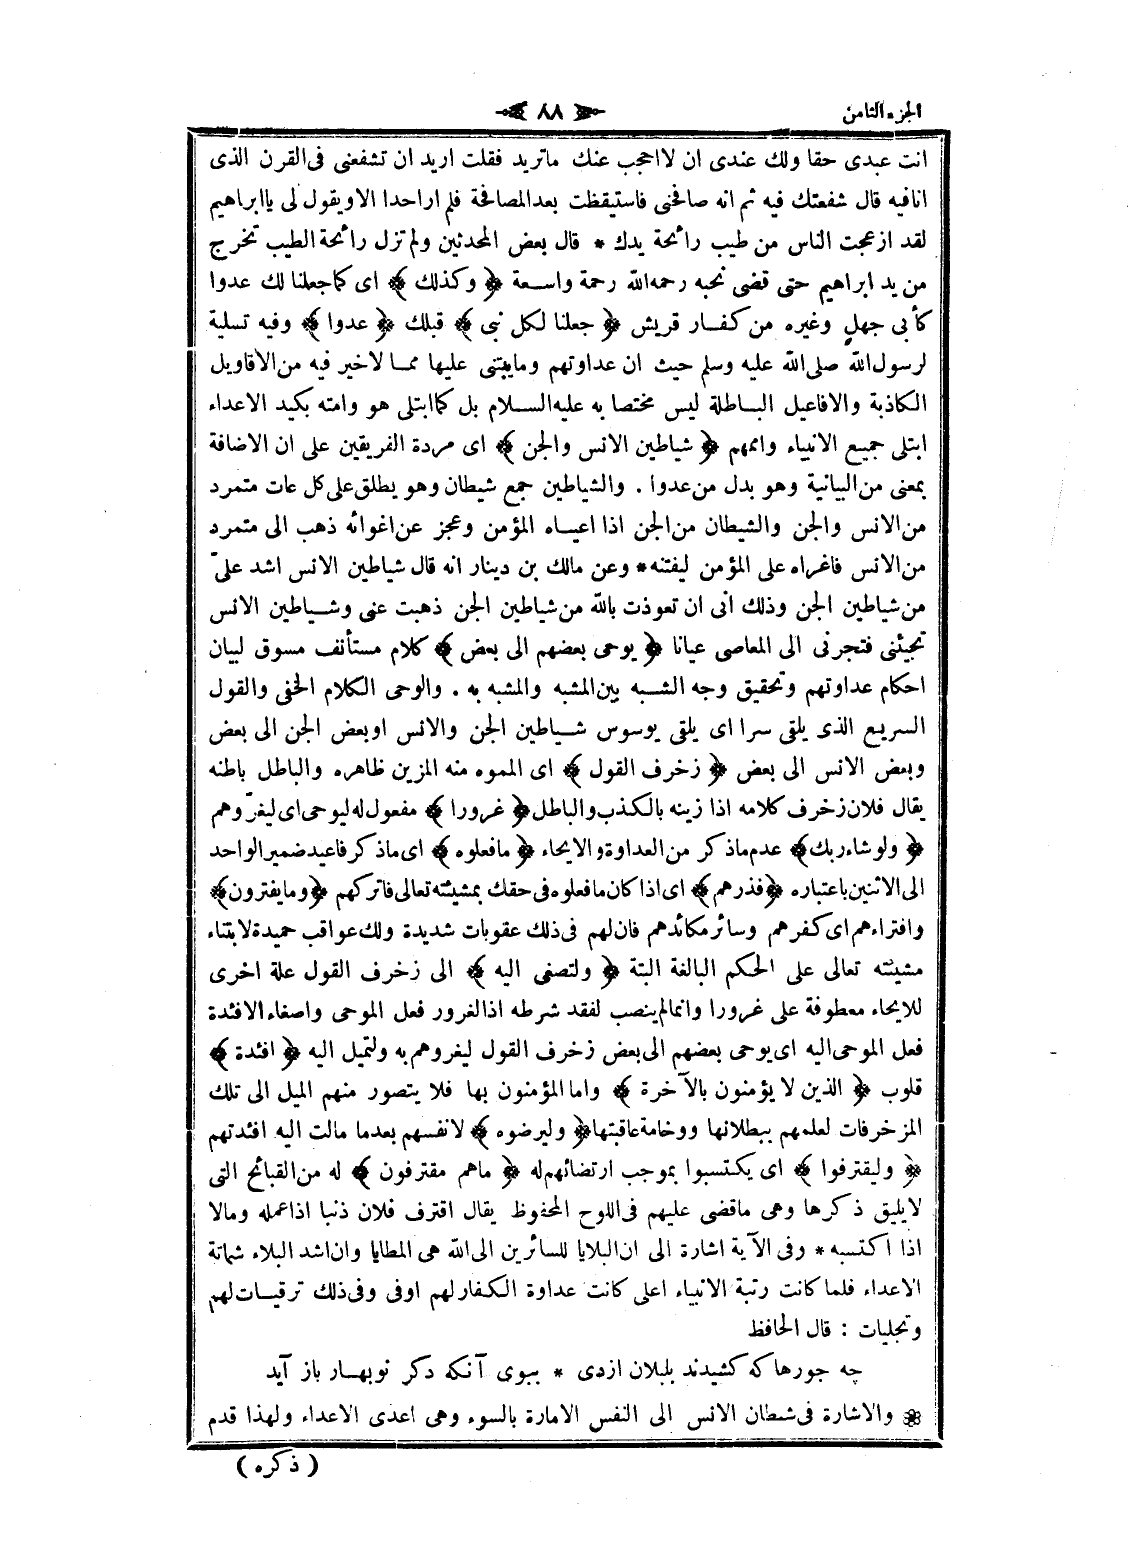 الجزء الثامن ٨٨
انت عبدى حقا ولك عندى ان لااحجب عنك ماتريد فقلت اريد ان تشفعنى فى القرن الذى
انافيه قال شفعتك فيه ثم انه صافحنى فاستيقظت بعدالمصافحة فلم اراحدا الاويقول لى ياابراهيم
لقد ازعجت الناس من طيب رائحة يدك * قال بعض المحدثين ولم تزل رائحة الطيب تخرج
من يد ابراهيم حتى قضى نحبه رحمه الله رحمة واسعة ﴿ وكذلك ﴾ اى كما جعلنا لك عدوا
كأبى جهل وغيره من كفار قريش ﴿ جعلنا لكل نبى ﴾ قبلك ﴿ عدوا ﴾ وفيه تسلية
لرسول الله صلى الله عليه وسلم حيث ان عداوتهم ومايبتنى عليها مما لاخير فيه من الاقاويل
الكاذبة والافاعيل الباطلة ليس مختصا به عليه السلام بل كما ابتلى هو وامته بكيد الاعداء
ابتلى جميع الانبياء واممهم ﴿ شياطين الانس والجن ﴾ اى مردة الفريقين على ان الاضافة
بمعنى من البيانية وهو بدل من عدوا . والشياطين جمع شيطان وهو يطلق على كل عات متمرد
من الانس والجن والشيطان من الجن اذا اعياه المؤمن وعجز عن اغوائه ذهب الى متمرد
من الانس فاغراه على المؤمن ليفتنه * وعن مالك بن دينار انه قال شياطين الانس اشد علىّ
من شياطين الجن وذلك انى ان تعوذت بالله من شياطين الجن ذهبت عنى وشياطين الانس
تجيئنى فتجرنى الى المعاصى عيانا ﴿ يوحى بعضهم الى بعض ﴾ كلام مستأنف مسوق لبيان
احكام عداوتهم وتحقيق وجه الشبه بين المشبه والمشبه به . والوحى الكلام الخفى والقول
السريع الذى يلقى سرا اى يلقى يوسوس شياطين الجن والانس اوبعض الجن الى بعض
وبعض الانس الى بعض ﴿ زخرف القول ﴾ اى المموه منه المزين ظاهره والباطل باطنه
يقال فلان زخرف كلامه اذا زينه بالكذب والباطل ﴿ غرورا ﴾ مفعول له ليوحى اى ليغرّوهم
﴿ ولوشاء ربك ﴾ عدم ماذكر من العداوة والايحاء ﴿ مافعلوه ﴾ اى ماذكر فاعيد ضمير الواحد
الى الاثنين باعتباره ﴿ فذرهم ﴾ اى اذا كان مافعلوه فى حقك بمشيئته تعالى فاتركهم ﴿ ومايفترون ﴾
وافتراءهم اى كفرهم وسائر مكائدهم فان لهم فى ذلك عقوبات شديدة ولك عواقب حميدة لابتناء
مشيئته تعالى على الحكم البالغة البتة ﴿ ولتصغى اليه ﴾ الى زخرف القول علة اخرى
للايحاء معطوفة على غرورا وانمالم ينصب لفقد شرطه اذالغرور فعل الموحى واصغاء الافئدة
فعل الموحى اليه اى يوحى بعضهم الى بعض زخرف القول ليغروهم به ولتميل اليه ﴿ افئدة ﴾
قلوب ﴿ الذين لا يؤمنون بالآخرة ﴾ واما المؤمنون بها فلا يتصور منهم الميل الى تلك
المزخرفات لعلمهم ببطلانها ووخامة عاقبتها ﴿ وليرضوه ﴾ لانفسهم بعدما مالت اليه افئدتهم
﴿ وليقترفوا ﴾ اى يكتسبوا بموجب ارتضائهم له ﴿ ماهم مقترفون ﴾ له من القبائح التى
لايليق ذكرها وهى ماقضى عليهم فى اللوح المحفوظ يقال اقترف فلان ذنبا اذاعمله ومالا
اذا اكتسبه * وفى الآية اشارة الى ان البلايا للسائرين الى الله هى المطايا وان اشد البلاء شماتة
الاعداء فلما كانت رتبة الانبياء اعلى كانت عداوة الكفارلهم اوفى وفى ذلك ترقيات لهم
وتجليات : قال الحافظ
چه جورها كه كشيدند بلبلان ازدى * ببوى آنكه دكر نوبهار باز آيد
والاشارة فى شيطان الانس الى النفس الامارة بالسوء وهى اعدى الاعداء ولهذا قدم
( ذكره )